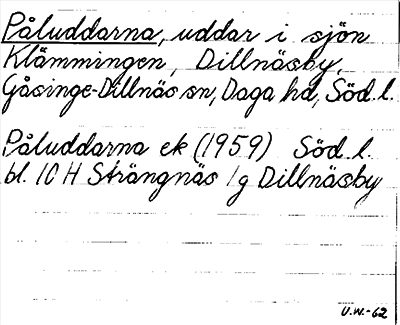 Påluddarna, uddar i sjön
Klämmingen, Dillnäsby,
Gåsinge-Dillnäs sn, Daga hd, Söd. l.
Påluddarna ek (1959) Söd. l.
bl. 10 H Strängnäs 1g Dillnäsby
U.W.-62